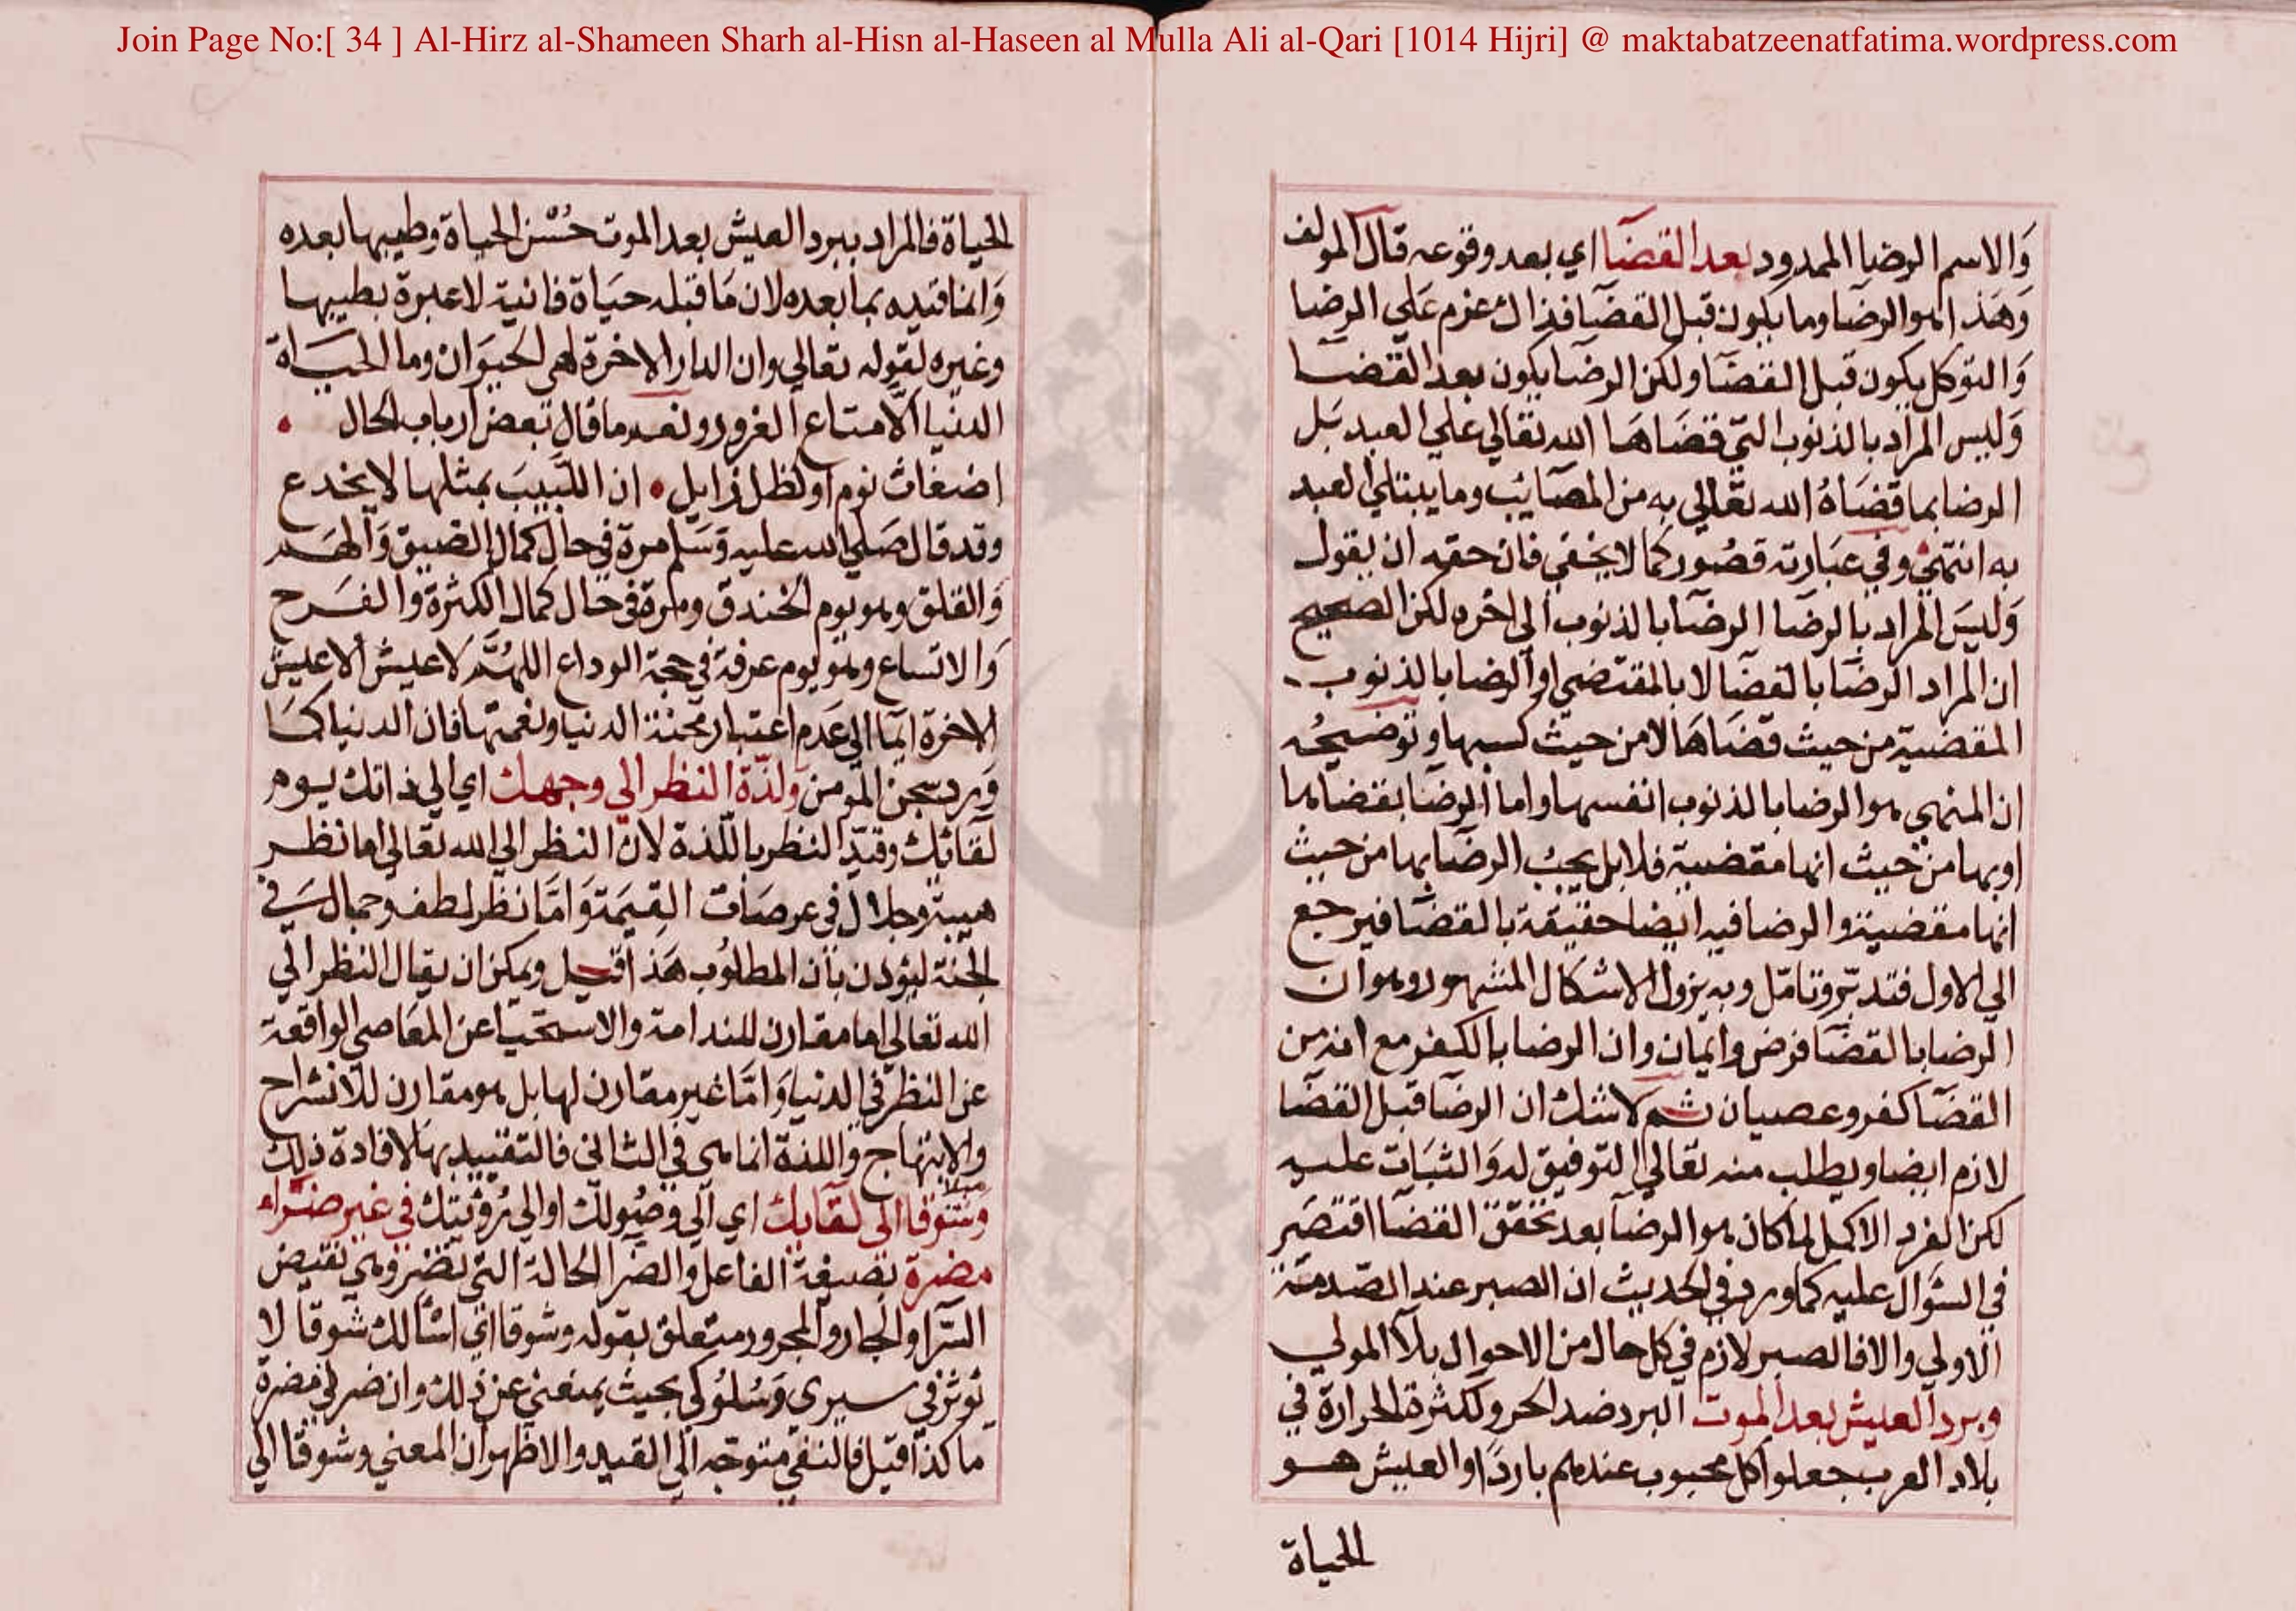 Join Page No:[ 34 ] Al-Hirz al-Shameen Sharh al-Hisn al-Haseen al Mulla Ali al-Qari [1014 Hijri] @ maktabatzeenatfatima.wordpress.com
وَالاسم الرضا الممدود بعد القضآ اي بعد وقوعه قال المولف
وَهَذا هوالرضا وما يكون قبل القضا فذاك عزم عَلي الرضا
وَالتوكل يكون قبل القضا ولكن الرضا يكون بعد القضا
وَليس المراد بالذنوب التي قضَاهَا الله تعالي علي العبد بَل
الرضا بما قضَاهُ الله تعالي به من المصَايب وما يبتلي العبد
به انتهي وفي عبَارته قصُور كما لا يخفي فان حقه ان يقول
وَليسَ المراد بالرضا الرضا بالذنوب الي اخره لكن الصحيح
ان المراد الرضا بالقضا لا بالمقتضي او الرضا بالذنوب
المقضية من حيث قضَاهَا لا من حيث كسبها وتوضيحُه
ان المنهي هوالرضا بالذنوب انفسها واما الرضا بقضاها
او بها من حيث انها مقضية فلا بل يجبُ الرضا بها من حيث
انها مقضية والرضا فيه ايضا حقيقة بالقضا فيرجع
الي الاول فتدبّر وتامّل وبه يزول الاشكال المشهور وهوان
الرضا بالقضا فرض وايمان وان الرضا بالكفر مع انه من
القضآ كفر وعصيان ثم لا شك ان الرضا قبل القضا
لازم ايضا ويطلب منه تعالي التوفيق له وَالثبَات عليه
لكن الفرد الاكمل لما كان هوالرضا بعد تحقق القضآ اقتصَر
في السؤال عليه كما ورد في الحديث ان الصبر عند الصّدمة
الاولي والا فالصبر لازم في كل حال من الاحوال بلآ المولي
وبرد العيش بعد الموت البرد ضد الحر ولكثرة الحرارة في
بلاد العرب جعلوا كل محبوب عندهم باردًا والعيش هو
الحياة
الحياة فالمراد ببرد العيش بعد الموت حُسْن الحياة وطيبها بعده
وَانما قيده بما بعده لان مَا قبله حيَاة فانية لا عبرة بطيبها
وغيره لقوله تعالي وان الدار الاخرة لهي الحيوَان وما الحيَاة
الدنيا الّا متاع الغرور ونعم ما قال بعض ارباب الحال
اضغاث نوم او لظل زايل ان اللبيبَ بمثلها لا يخدع
وقد قال صَلي الله عليه وَسَلم مرة في حال كمال الضيق وَالهَم
وَالقلق وهو يوم الخندق ومرة في حال كمال الكثرة والفَرح
وَالاتساع وهو يوم عرفة في حجة الوداع اللهُمَّ لا عيش الا عيش
الاخرة ايمآ الي عَدم اعتبار محنة الدنيا ونعمتها فان الدنيا كمَا
وَرد سجن المومن ولذّة النظر الي وجهك اي الي ذاتك يوم
لقائك وقيّد النظر باللّذة لان النظر الي الله تعالي اما نظر
هيبة وجلال في عرصَات القِيمَة وَامَّا نظر لطف وجمال في
الجنة ليؤذن بان المطلوُب هَذا قيل ويمكن ان يقال النظر الي
الله تعالي اما مقارن للندامة والاستحيا عن المعَاصي الواقعة
عن النظر في الدنيا وَامَّا غير مقارن لها بل هو مقارن للانشراح
والابتهاج واللذة انما هي في الثاني فالتقييد بها لافادة ذلك
وَشوقا الي لقآيك اي الي وصُولك او الي رُؤيتك في غير ضرّاء
مضرة بصيغة الفاعل والضّرا الحالة التي تضر وهي نقيض
السّرا والجار والمجرور متعلق بقوله وشوقا اي اسْالك شوقا لا
يُوثر في سيري وَسُلوُكي بحيث يمنعني عن ذلك وان ضرني مضرة
ما كذا قيل فالنفي متوجه الي القيد والاظهر ان المعني وشوقا الي